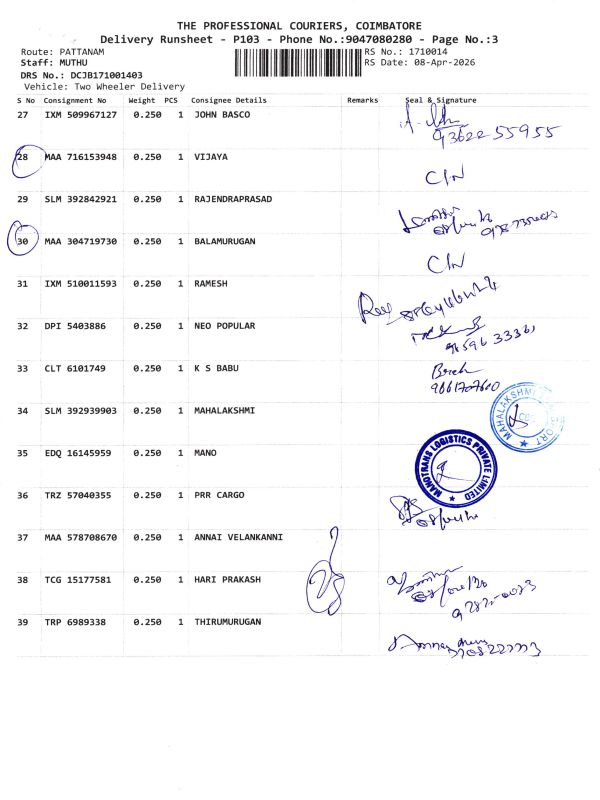 THE PROFESSIONAL COURIERS, COIMBATORE
Delivery Runsheet - P103 - Phone No.:9047080280 - Page No.:3
Route: PATTANAM RS No.: 1710014
Staff: MUTHU RS Date: 08-Apr-2026
DRS No.: DCJB171001403
Vehicle: Two Wheeler Delivery
S No Consignment No Weight PCS Consignee Details Remarks Seal & Signature
27 IXM 509967127 0.250 1 JOHN BASCO
9362255955
28 MAA 716153948 0.250 1 VIJAYA
C/N
29 SLM 392842921 0.250 1 RAJENDRAPRASAD
30 MAA 304719730 0.250 1 BALAMURUGAN
C/N
31 IXM 510011593 0.250 1 RAMESH
32 DPI 5403886 0.250 1 NEO POPULAR
33 CLT 6101749 0.250 1 K S BABU
34 SLM 392939903 0.250 1 MAHALAKSHMI
MAHALAKSHMI
35 EDQ 16145959 0.250 1 MANO
MANOTRANS LOGISTICS PRIVATE LIMITED
36 TRZ 57040355 0.250 1 PRR CARGO
37 MAA 578708670 0.250 1 ANNAI VELANKANNI
38 TCG 15177581 0.250 1 HARI PRAKASH
39 TRP 6989338 0.250 1 THIRUMURUGAN